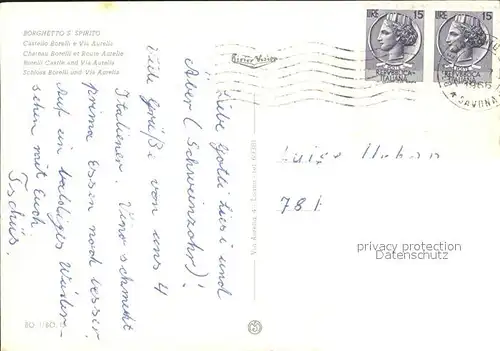 BORGHETTO S. SPIRITO
Castello Borelli e Via Aurelia
Chateau Borelli et Route Aurelia
Borelli Castle and Via Aurelia
Schloss Borelli und Via Aurelia
LIRE 15
LIRE 15
REPUBBLICA ITALIANA
REPUBBLICA ITALIANA
SAVONA
Liebe Gotti Lüsi und
Aber (Schweinzohr)!
Viele Grüße von uns 4
Italiener. Vino schmeckt
prima Essen noch besser.
Auf ein baldiges Wieder-
sehen mit Euch
Tschüs.
781
privacy protection
Datenschutz